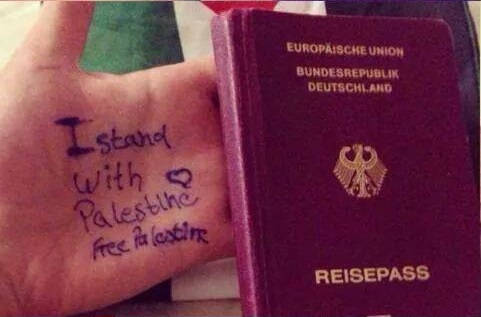 I stand
with
Palestine
Free Palestine
EUROPÄISCHE UNION
BUNDESREPUBLIK
DEUTSCHLAND
REISEPASS